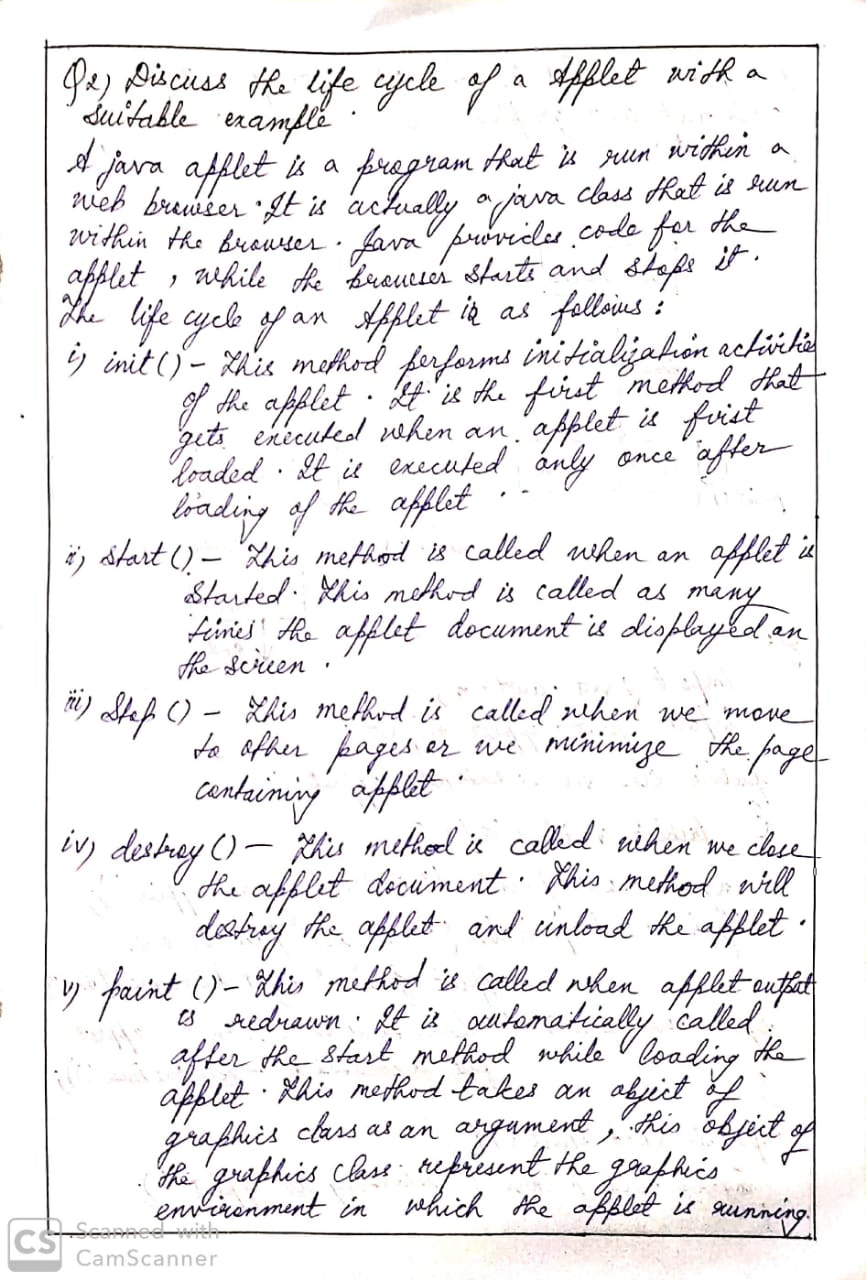 Q2) Discuss the life cycle of a Applet with a
suitable example.
A java applet is a program that is run within a
web browser. It is actually a java class that is run
within the browser. Java provides code for the
applet, while the browser starts and stops it.
The life cycle of an Applet is as follows:
i) init() - This method performs initialization activities
of the applet. It is the first method that
gets executed when an applet is first
loaded. It is executed only once after
loading of the applet
ii) start() - This method is called when an applet is
started. This method is called as many
times the applet document is displayed on
the screen.
iii) Stop () - This method is called when we move
to other pages or we minimize the page
containing applet.
iv) destroy () - This method is called when we close
the applet document. This method will
destroy the applet and unload the applet.
v) paint () - This method is called when applet output
is redrawn. It is automatically called
after the start method while loading the
applet. This method takes an object of
graphics class as an argument, this object of
the graphics class represent the graphics
environment in which the applet is running.
CS Scanned with
CamScanner